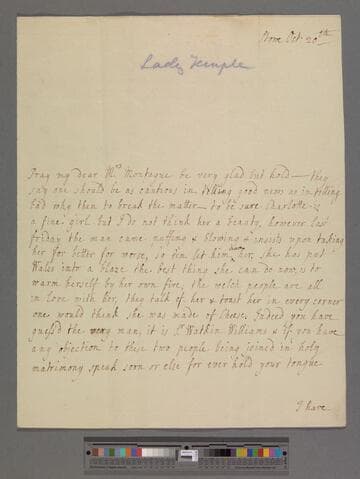 Stowe Oct 20th
Lady Temple
Pray my dear Mrs Montague be very glad but hold— they
say one should be as cautious in telling good news as in telling
bad why then to break the matter— to be sure Charlotte is
a fine girl but I do not think her a beauty, however last
friday the man came puffing & blowing & insists upon taking
her for better for worse, so e'en let him, her, she has put
Wales into a blaze the best thing she can do now is to
warm herself by her own fire, the welch people are all
in love with her, they talk of her & toast her in every corner
one would think she was made of Cheese. Indeed you have
guess'd the very man, it is Sr Watkin Williams & if you have
any objection to these two people being joined in holy
matrimony speak soon or else for ever hold your tongue
I have